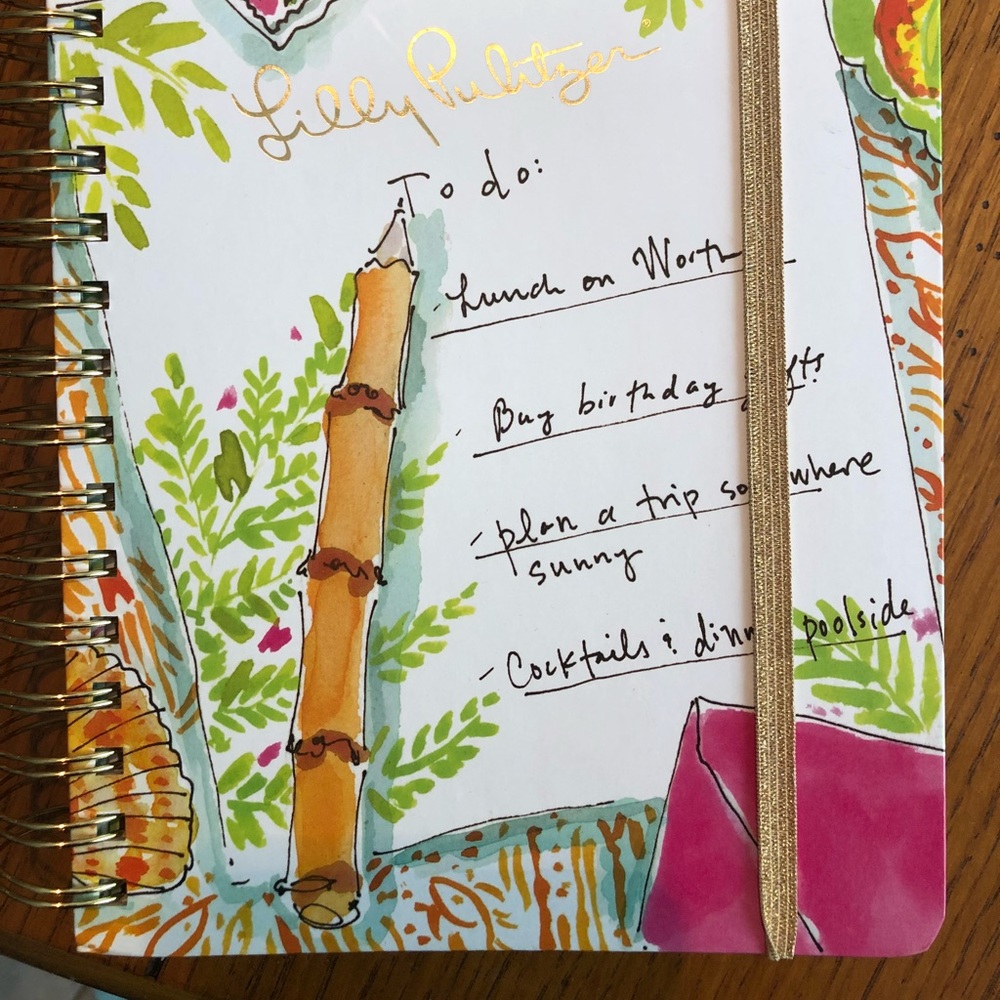 Lilly Pulitzer
To do:
- Lunch on Worth
- Buy birthday gifts
- plan a trip somewhere
sunny
- Cocktails & dinner poolside